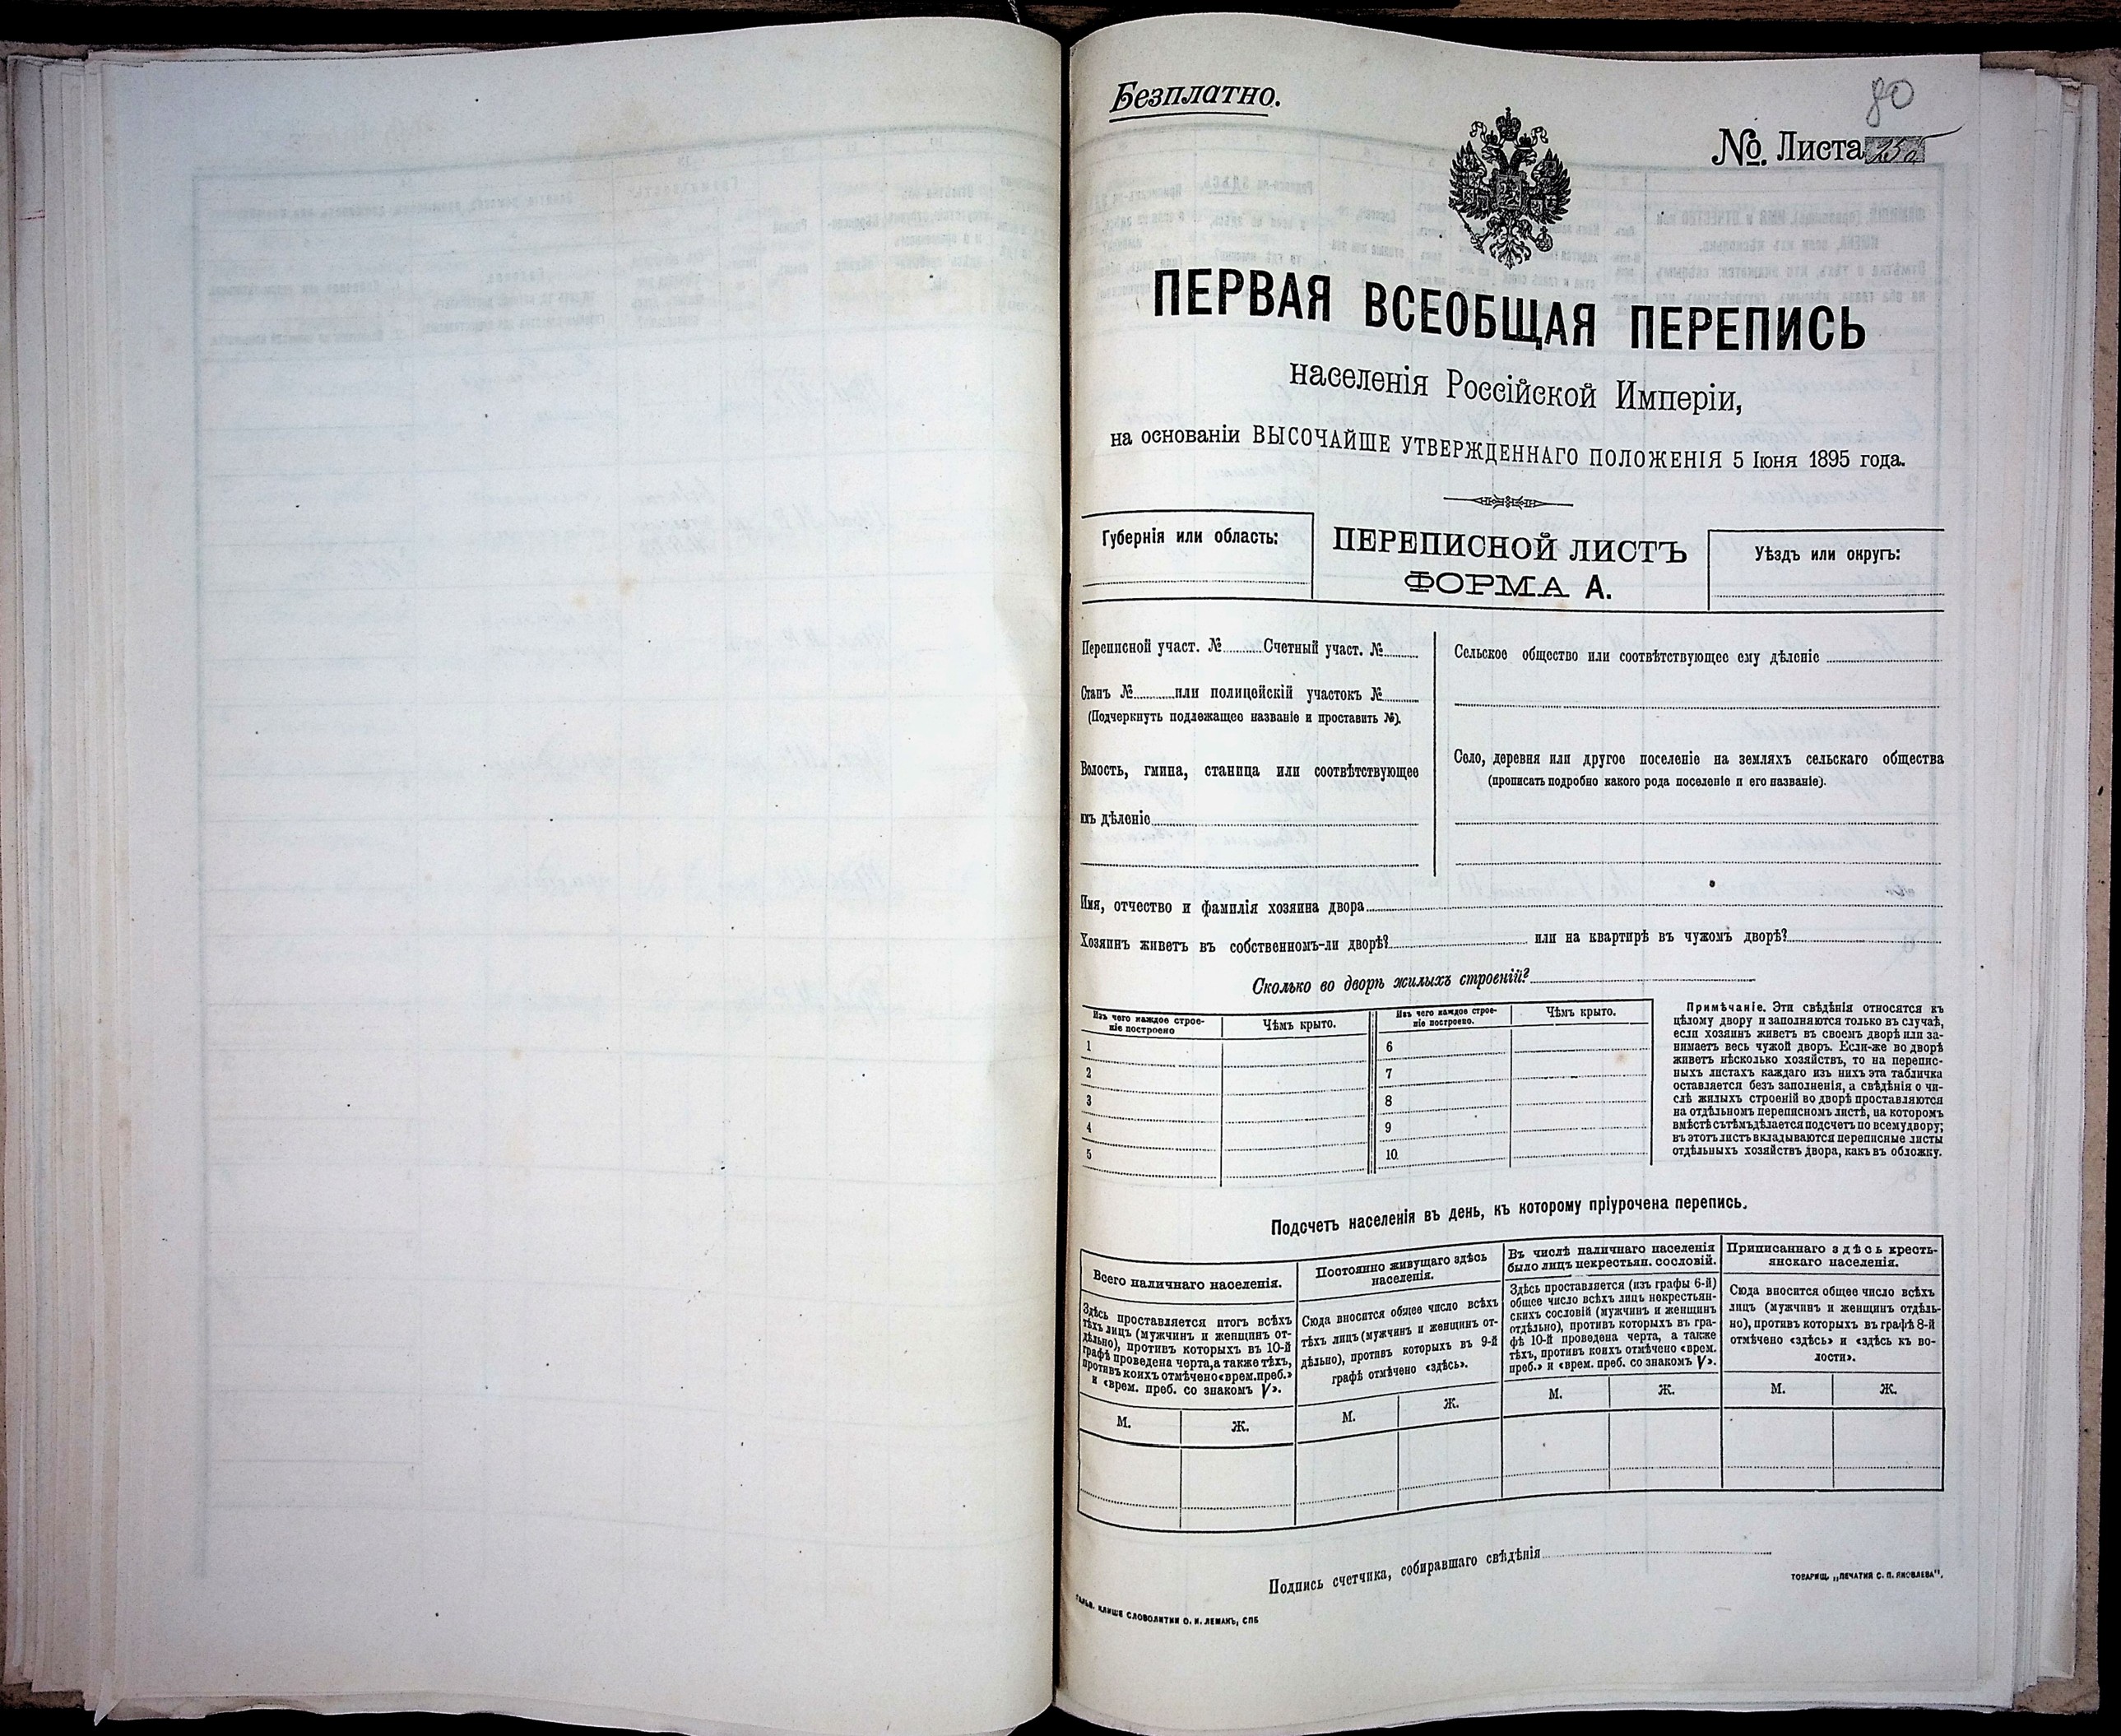 Безплатно.
80
№. Листа 25а
ПЕРВАЯ ВСЕОБЩАЯ ПЕРЕПИСЬ
населенія Россійской Имперіи,
на основаніи ВЫСОЧАЙШЕ УТВЕРЖДЕННАГО ПОЛОЖЕНІЯ 5 Іюня 1895 года.
Губернія или область:
ПЕРЕПИСНОЙ ЛИСТЪ
ФОРМА А.
Уѣздъ или округъ:
Переписной участ. № Счетный участ. №
Станъ № или полицейскій участокъ №
(Подчеркнуть подлежащее названіе и проставить №).
Волость, гмина, станица или соотвѣтствующее
имъ дѣленіе
Сельское общество или соотвѣтствующее ему дѣленіе
Село, деревня или другое поселеніе на земляхъ сельскаго общества
(прописать подробно какого рода поселеніе и его названіе).
Имя, отчество и фамилія хозяина двора
Хозяинъ живетъ въ собственномъ-ли дворѣ? или на квартирѣ въ чужомъ дворѣ?
Сколько во дворѣ жилыхъ строеній?
Изъ чего каждое строе-
ніе построено
Чѣмъ крыто.
1
2
3
4
5
Изъ чего каждое строе-
ніе построено.
Чѣмъ крыто.
6
7
8
9
10.
Примѣчаніе. Эти свѣдѣнія относятся къ
цѣлому двору и заполняются только въ случаѣ,
если хозяинъ живетъ въ своемъ дворѣ или за-
нимаетъ весь чужой дворъ. Если-же во дворѣ
живетъ нѣсколько хозяйствъ, то на перепис-
ныхъ листахъ каждаго изъ нихъ эта табличка
оставляется безъ заполненія, а свѣдѣнія о чи-
слѣ жилыхъ строеній во дворѣ проставляются
на отдѣльномъ переписномъ листѣ, на которомъ
вмѣстѣ съ тѣмъ дѣлается подсчетъ по всему двору;
въ этотъ листъ вкладываются переписные листы
отдѣльныхъ хозяйствъ двора, какъ въ обложку.
Подсчетъ населенія въ день, къ которому пріурочена перепись.
Всего наличнаго населенія.
Здѣсь проставляется итогъ всѣхъ
тѣхъ лицъ (мужчинъ и женщинъ от-
дѣльно), противъ которыхъ въ 10-й
графѣ проведена черта, а также тѣхъ,
противъ коихъ отмѣчено «врем. преб.»
и «врем. преб. со знакомъ V».
М.
Ж.
Постоянно живущаго здѣсь
населенія.
Сюда вносится общее число всѣхъ
тѣхъ лицъ (мужчинъ и женщинъ от-
дѣльно), противъ которыхъ въ 9-й
графѣ отмѣчено «здѣсь».
М.
Ж.
Въ числѣ наличнаго населенія
было лицъ некрестьян. сословій.
Здѣсь проставляется (изъ графы 6-й)
общее число всѣхъ лицъ некрестьян-
скихъ сословій (мужчинъ и женщинъ
отдѣльно), противъ которыхъ въ гра-
фѣ 10-й проведена черта, а также
тѣхъ, противъ коихъ отмѣчено «врем.
преб.» и «врем. преб. со знакомъ V».
М.
Ж.
Приписаннаго здѣсь кресть-
янскаго населенія.
Сюда вносится общее число всѣхъ
лицъ (мужчинъ и женщинъ отдѣль-
но), противъ которыхъ въ графѣ 8-й
отмѣчено «здѣсь» и «здѣсь къ во-
лости».
М.
Ж.
Подпись счетчика, собиравшаго свѣдѣнія
ТОВАРИЩ. „ПЕЧАТНЯ С. П. ЯКОВЛЕВА".
ГАЛЬВ. КЛИШЕ СЛОВОЛИТНИ О. И. ЛЕМАНЪ, СПБ